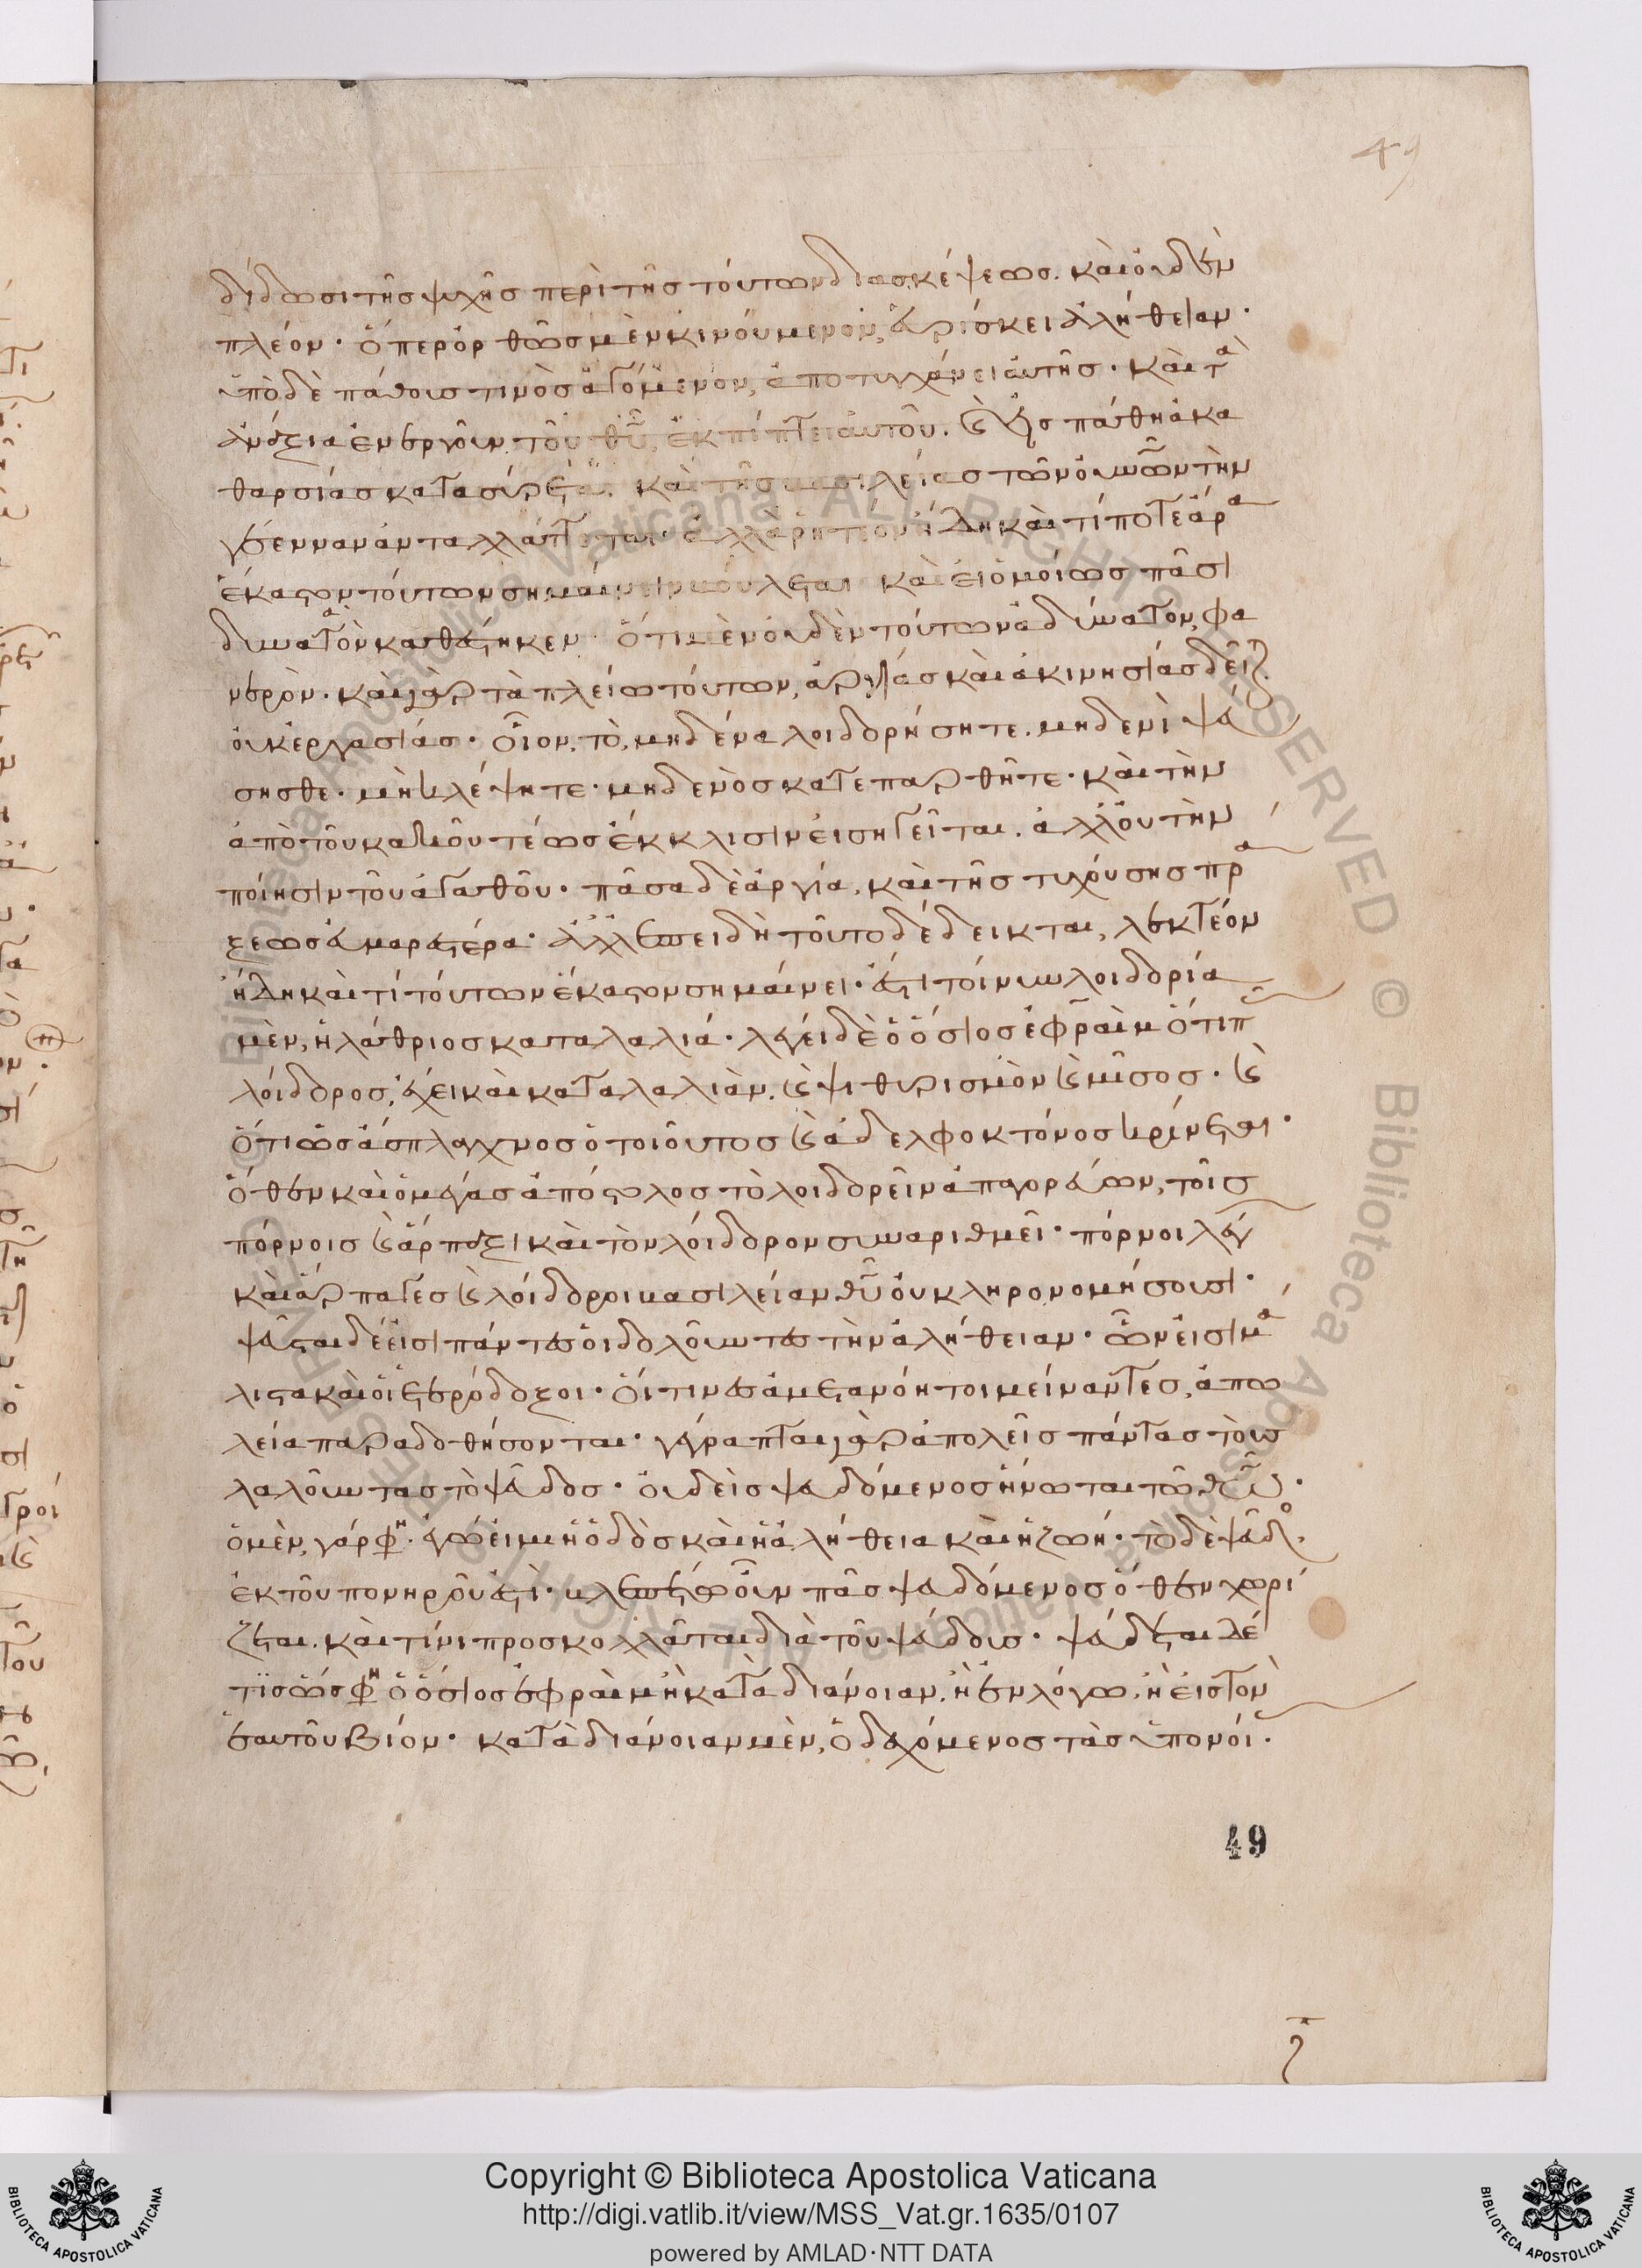 49
δίδωσι τῆς ψυχῆς περὶ τῆς τούτων διασκέψεως. καὶ οὐδὲν
πλέον· ὅπερ ὀρθῶς μὲν κινούμενον, εὑρίσκει ἀλήθειαν·
ὑπὸ δὲ πάθους τινὸς ἀγόμενον, ἀποτυγχάνει αὐτῆς· καὶ τὰ
ἀνάξια ἐνεργοῦν τοῦ θῦ, ἐκπίπτει αὐτοῦ. καὶ εἰς πάθη ἀκα
θαρσίας κατασύρεται. καὶ τῆς βασιλείας τῶν οὐνῶν τὴν
γέενναν ἀνταλλάττεται· ἀλλὰ ῥητέον ἤδη καὶ τί ποτε ἄρα
ἕκαστον τούτων σημαίνειν βούλεται καὶ εἰ ὁμοίως πᾶσι
δυνατὸν καθάστηκεν· ὅτι μὲν οὐδὲν τούτων ἀδύνατον, φα
νερὸν. καὶ γὰρ τὰ πλείω τούτων, ἀργίας καὶ ἀκινησίας δεῖτ
οὐκ ἐργασίας· οἷον, τὸ, μηδένα λοιδορήσητε. μηδενὶ ψεύ
σησθε· μὴ βλέψητε· μηδενὸς κατεπαρθῆτε· καὶ τὴν
ἀπὸ τοῦ κακοῦ τέως ἔκκλισιν εἰσηγεῖται. ἀλλ' οὐ τὴν
ποίησιν τοῦ ἀγαθοῦ· πᾶσα δὲ ἀργία, καὶ τῆς τυχούσης πρα
ξεως εὐμαρεστέρα· ἀλλ' ἐπειδὴ τοῦτο δέδεικται, λεκτέον
ἤδη καὶ τί τούτων ἕκαστον σημαίνει· ἔστι τοίνυν λοιδορία
μὲν, ἡ λάθριος καταλαλιά· λέγει δὲ ὁ ὅσιος ἐφραὶμ ὅτι π
λοίδορος, ἔχει καὶ καταλαλιὰν, καὶ ψιθυρισμὸν καὶ μῖσος· καὶ
ὅτι ὡς ἄσπλαγχνος ὁ τοιοῦτος καὶ ἀδελφοκτόνος κρίνεται·
ὅθεν καὶ ὁ μέγας ἀπόστολος τὸ λοιδορεῖν ἀπαγορεύων, τοῖς
πόρνοις καὶ ἅρπαξι καὶ τὸν λοίδορον συναριθμεῖ· πόρνοι λέγ
καὶ ἅρπαγες καὶ λοίδοροι βασιλείαν θῦ οὐ κληρονομήσουσι·
ψεῦσται δέ εἰσι πάντες οἱ δολοῦντες τὴν ἀλήθειαν· ὧν εἰσι μα
λιστα καὶ οἱ ἑτερόδοξοι· οἵτινες ἀμετανόητοι μείναντες, ἀπω
λεία παραδοθήσονται· γέγραπται γὰρ ἀπολεῖς πάντας τοὺς
λαλοῦντας τὸ ψεῦδος· οὐδεὶς ψευδόμενος ἥνωται τῶ θῶ·
ὁ μὲν, γάρ φη. ἐγώ εἰμι ἡ ὁδὸς καὶ ἡ ἀλήθεια καὶ ἡ ζωή· τὸ δὲ ψεῦδο
ἐκ τοῦ πονηροῦ ἐστί· βλεπέτω οὖν πᾶς ψευδόμενος ὅθεν χωρί
ζεται. καὶ τίνι προσκολλᾶται διὰ τοῦ ψεύδους· ψεύδεται δέ
τις ὥς φη ὁ ὅσιος ἐφραὶμ ἢ κατὰ διάνοιαν, ἢ ἐν λόγω, ἢ εἰς τὸν
ἑαυτοῦ βίον· κατὰ διάνοιαν μὲν, ὁ δεχόμενος τὰς ὑπονοί·
49
Copyright © Biblioteca Apostolica Vaticana
http://digi.vatlib.it/view/MSS_Vat.gr.1635/0107
powered by AMLAD·NTT DATA